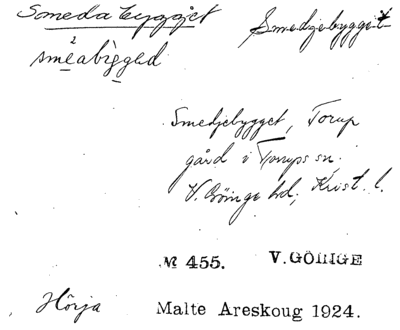 Smedabygget Smedjebygget
smeabigged
Smedjebygget, Torup
gård i Torups sn.
V. Göinge hd; Krist. l.
M 455. V. GÖINGE
Hörja Malte Areskoug 1924.